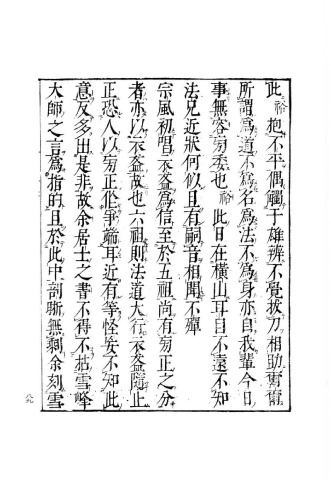 此裕抱不平偶觸于雄辨不覺拔刀相助爾爾
所謂爲道不爲名爲法不爲身亦自我輩今日
事無容芻委也裕此日在橫山耳目不遠不知
法兄近狀何似且有嗣音相聞不殫
宗風初唱衣盔爲信至於五祖尚有旁正之分
者亦以衣盔故也六祖則法道大行衣盔隨止
正恐人以旁正俗爭端耳近有等怪妄不知此
意反多出是非故余居士之書不得不拈雪峰
大師之言爲指的且於此中剖晰無剩余刻雪